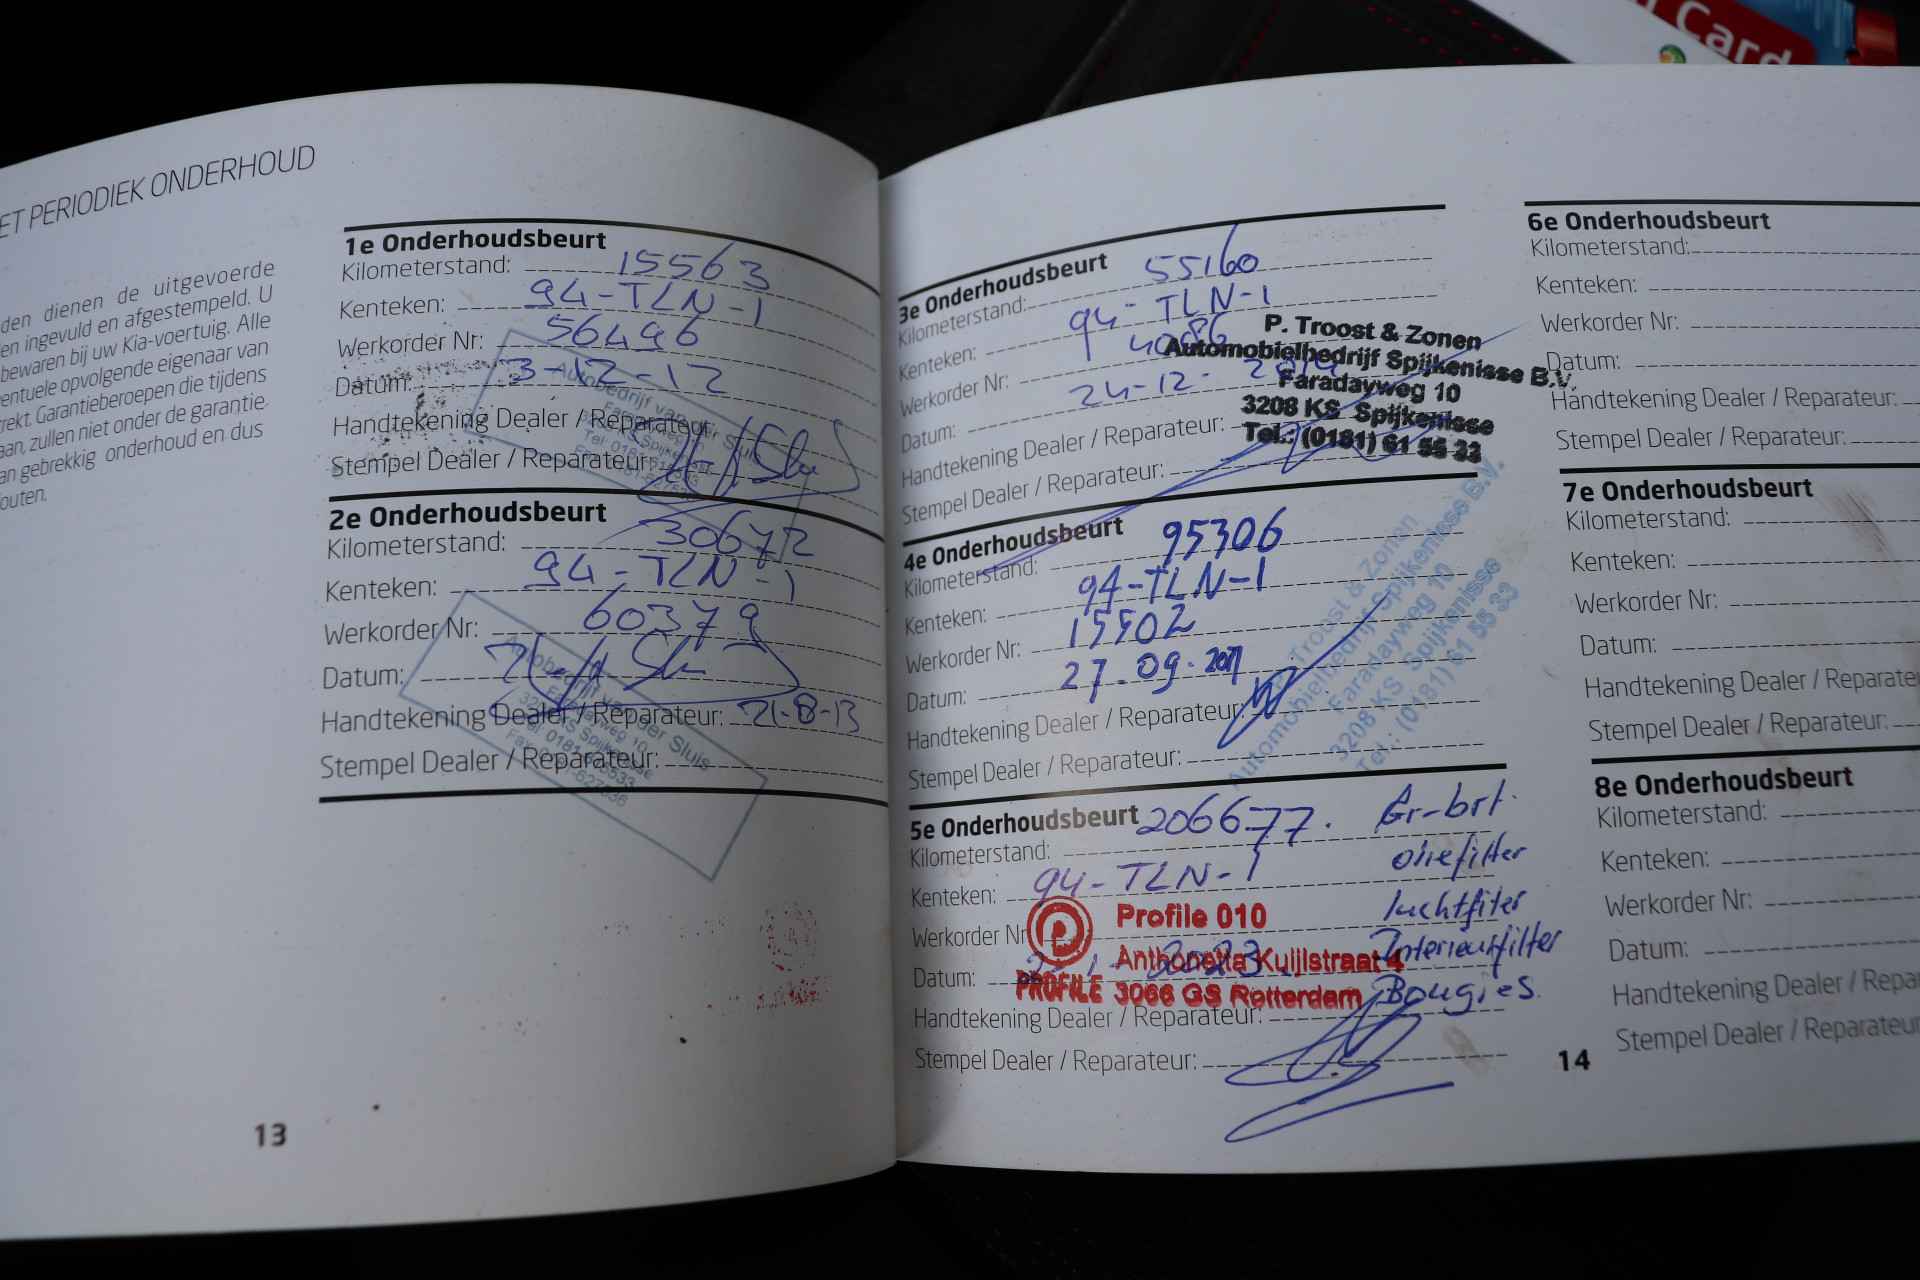 Card
ET PERIODIEK ONDERHOUD
den dienen de uitgevoerde
en ingevuld en afgestempeld. U
bewaren bij uw Kia-voertuig. Alle
entuele opvolgende eigenaar van
rekt. Garantieberoepen die tijdens
aan, zullen niet onder de garantie.
an gebrekkig onderhoud en dus
outen.
1e Onderhoudsbeurt
Kilometerstand: 15563
Kenteken: 94-TLN-1
Werkorder Nr: 56496
Datum: 3-12-12
Handtekening Dealer / Reparateur:
Stempel Dealer / Reparateur:
Autobedrijf van der Sluis
2e Onderhoudsbeurt
Kilometerstand: 30672
Kenteken: 94-TLN-1
Werkorder Nr: 60379
Datum:
Handtekening Dealer / Reparateur: 21-8-13
Stempel Dealer / Reparateur:
Autobedrijf van der Sluis
13
3e Onderhoudsbeurt
Kilometerstand: 55160
Kenteken: 94-TLN-1
Werkorder Nr: 4086
Datum: 24-12-2014
Handtekening Dealer / Reparateur:
Stempel Dealer / Reparateur:
P. Troost & Zonen
Automobielbedrijf Spijkenisse B.V.
Faradayweg 10
3208 KS Spijkenisse
Tel.: (0181) 61 55 33
4e Onderhoudsbeurt
Kilometerstand: 95306
Kenteken: 94-TLN-1
Werkorder Nr: 15502
Datum: 27-09-2017
Handtekening Dealer / Reparateur:
Stempel Dealer / Reparateur:
P. Troost & Zonen
Automobielbedrijf Spijkenisse B.V.
Faradayweg 10
3208 KS Spijkenisse
Tel.: (0181) 61 55 33
5e Onderhoudsbeurt 206677. Gr-brt.
Kilometerstand: oliefilter
Kenteken: 94-TLN-1 luchtfilter
Werkorder Nr Interieurfilter
Datum: 2023 Bougies
Handtekening Dealer / Reparateur:
Stempel Dealer / Reparateur:
Profile 010
Anthonetta Kuijlstraat 4
PROFILE 3066 GS Rotterdam
6e Onderhoudsbeurt
Kilometerstand:
Kenteken:
Werkorder Nr:
Datum:
Handtekening Dealer / Reparateur:
Stempel Dealer / Reparateur:
7e Onderhoudsbeurt
Kilometerstand:
Kenteken:
Werkorder Nr:
Datum:
Handtekening Dealer / Reparate
Stempel Dealer / Reparateur:
8e Onderhoudsbeurt
Kilometerstand:
Kenteken:
Werkorder Nr:
Datum:
Handtekening Dealer / Repa
Stempel Dealer / Reparateur
14